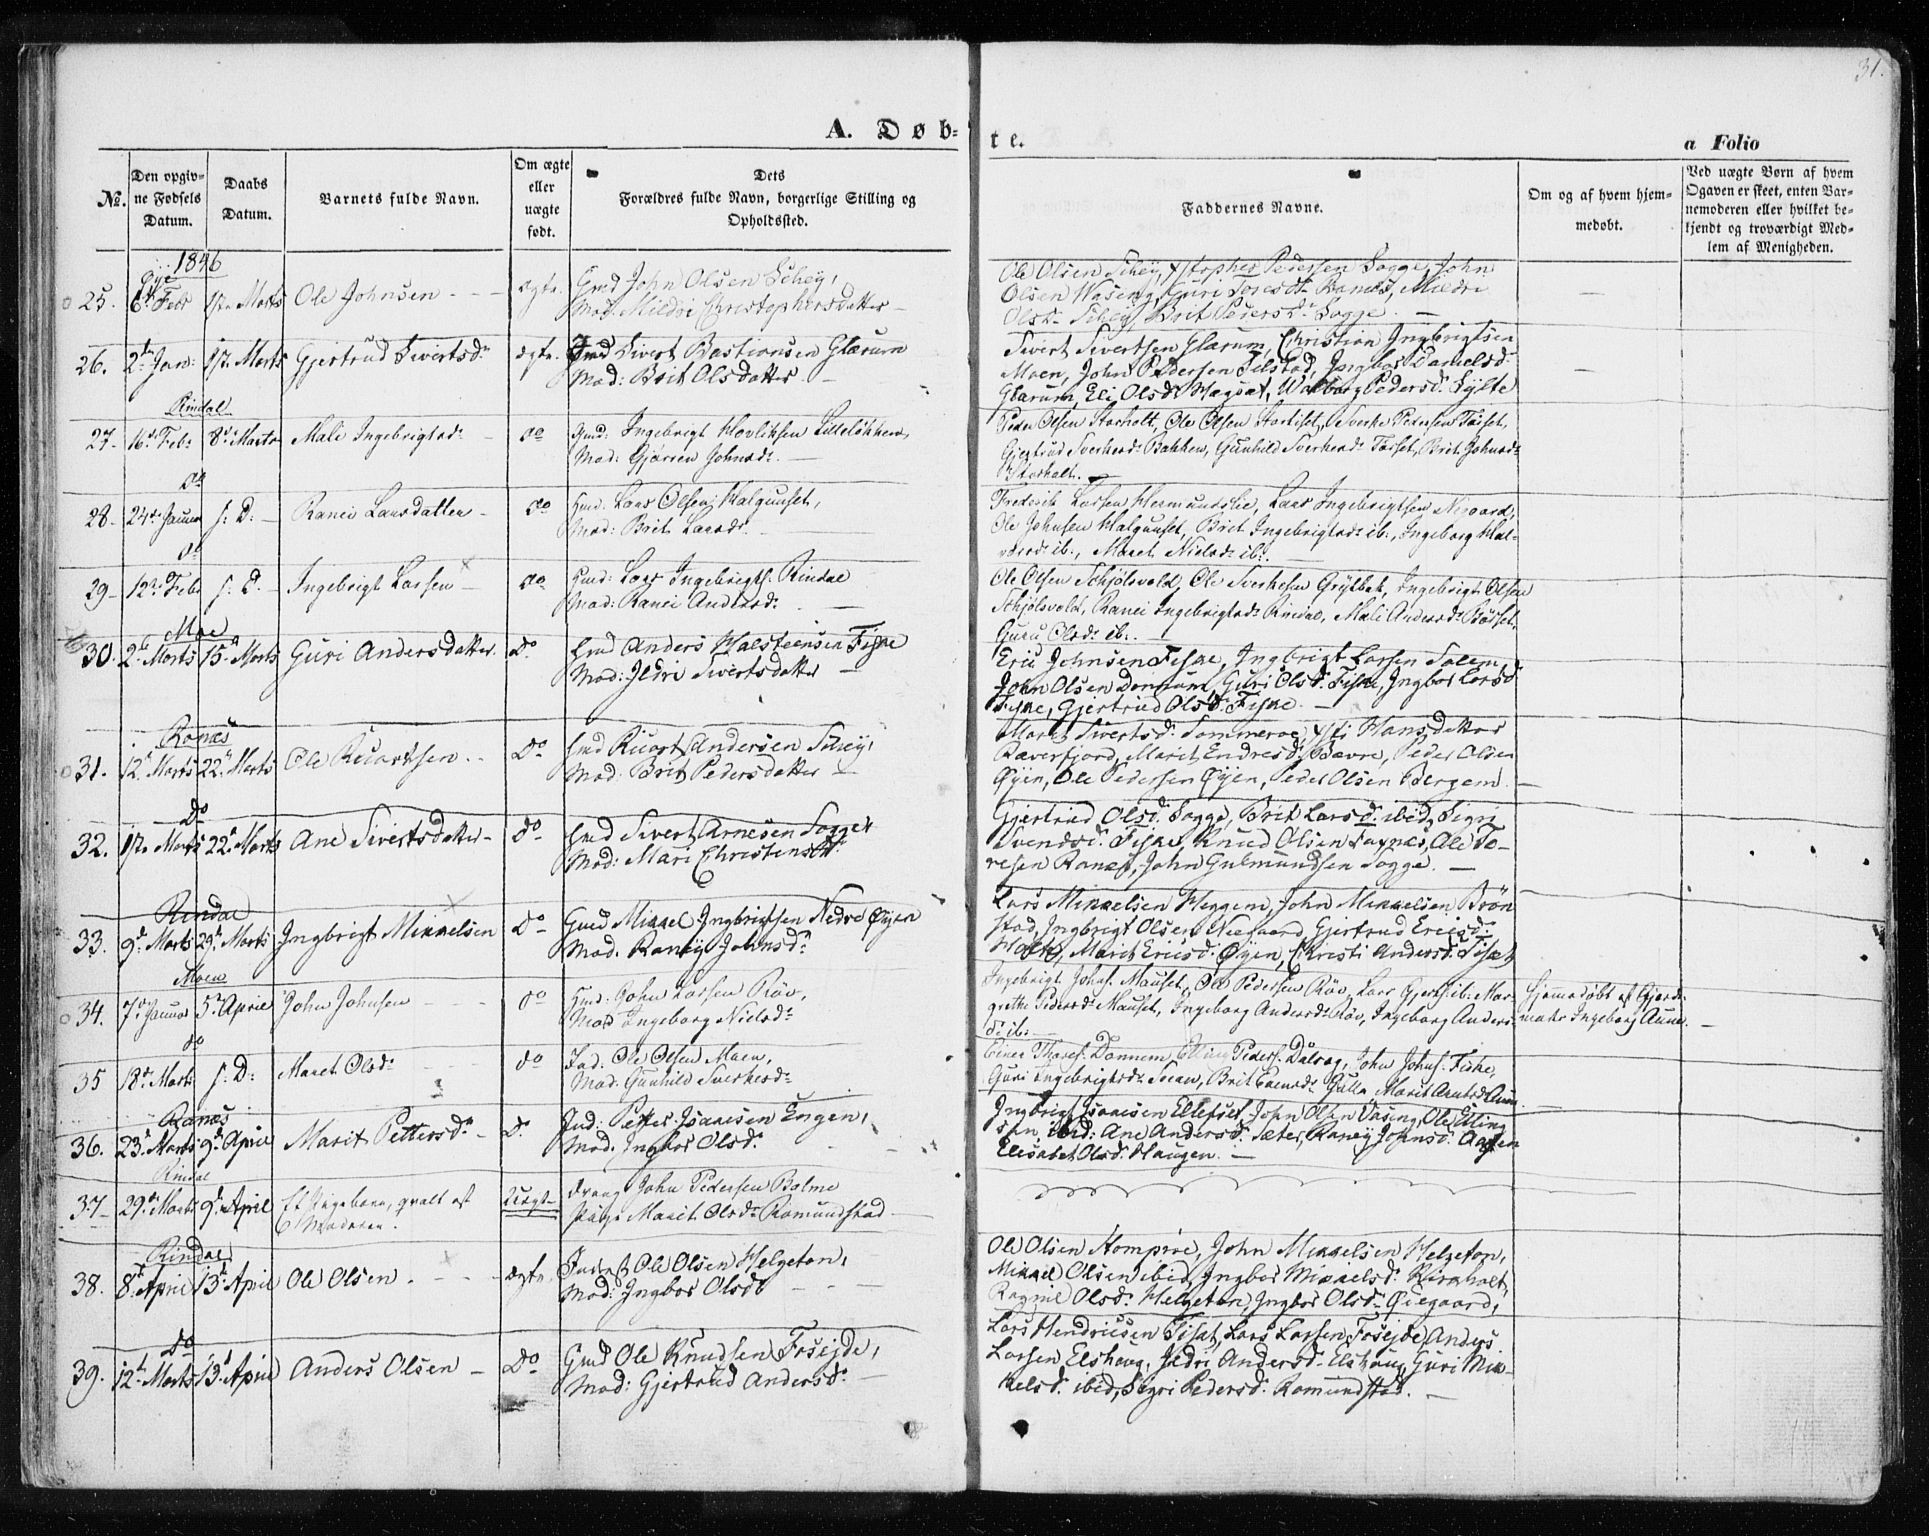 31.
A. Døb-
te.
a Folio
No.
Den opgiv-
ne Fødsels
Datum.
Daabs
Datum.
Barnets fulde Navn.
Om ægte
eller
uægte
født.
Dets
Forældres fulde Navn, borgerlige Stilling og
Opholdssted.
Faddernes Navne.
Om og af hvem hjem-
medøbt.
Ved uægte Børn af hvem
Opgaven er skeet, enten Bar-
nemoderen eller hvilket be-
kjendt og troværdigt Med-
lem af Menigheden.
1846
Øye
25. 6t Febr 1ste Marts Ole Johnsen ægte. Gmd John Olsen Schey,
Mod. Mildri Christophersdatter
Ole Olsen Schey, Xstopher Pedersen Sogge, John
Olsen Waseng, Guri Toresdr Ranæs, Mildri
Olsdr Schey, Brit Pedersdr Sogge.
26. 2t Jan: 1ste Marts Gjertrud Sivertsdr ægte. Gmd Sivert Bastiansen Glærum
Mod: Brit Olsdatter
Sivert Sivertsen Glærum, Christian Ingbrigtsen
Moen, John Pedersen Telstad, Ingbor Danielsd.
Glærum, Eli Olsd. Hagset, Walborg Pedersd. Sylte
Rindal
27- 16de Febr 8de Marts Mali Ingebrigtsdr do Gmd: Ingebrigt Havliksen Lilleløkken,
Mod: Gjørren Johnsdr.
Peder Olsen Storholt, Ole Olsen Stortiset, Sverke Pedersen Tøsset,
Gjertrud Sverkesdr Bakken, Gunhild Sverkesdr Tøsset, Brit Johnsdr
Storholt.
do
28- 24de Januar s. D. Ranei Larsdatter do Hmd: Lars Olsen Halgunset,
Mod: Brit Larsdr
Frederik Larsen Hermundslie, Lars Ingebrigtsen Negaard,
Ole Johnsen Halgunset, Brit Ingebrigtsdr ib., Ingeborg Hal-
vorsdr ib., Maret Nielsdr ib.
do
29- 12te Febr s. D. Ingebrigt Larsen do Gmd: Lars Ingebrigts. Rindal
Mod: Ranei Andersdr
Ole Olsen Schjølsvold, Ole Sverkesen Grytbak, Ingebrigt Olsen
Schjølsvold, Ranei Ingebrigtsdr Rindal, Mali Andersdr Bøsset,
Guru Olsdr ib.
Moe
30. 2t Marts 15t Marts Guri Andersdatter. Do Gmd Anders Halsteensen Fiske
Mod: Ildri Sivertsdatter
Eric Johnsen Fiske, Ingbrigt Larsen Solem,
John Olsen Donnum, Guri Olsd. Fiske, Ingbor Larsd
Fiske, Gjertrud Olsd. Fiske.
Ranæs
31. 12t Marts 22t Marts Ole Ricartsen Do Gmd Ricart Andersen Schey,
Mod: Brit Pedersdatter
Marit Sivertsd. Sommeroe, Hansdatter
Bæverfjord, Marit Endresd. Bævre, Peder Olsen
Øyen, Ole Pedersen Øyen, Peder Olsen Bergem
Do
32. 1ste Marts 22t Marts Ane Sivertsdatter Do Gmd Sivert Arnesen Sogge
Mod: Mari Christensdr
Gjertrud Olsd. Sogge, Brit Larsd. ibid, Sigri
Svendsd. Fiske, Knud Olsen Faxnes, Ole To-
resen Ranæs, John Gulmundsen Sogge.
Rindal
33. 9t Marts 29t Marts Ingbrigt Mikkelsen Do Gmd Mikkel Ingbrigtsen Nedre Øyen
Mod. Raney Johnsdr
Lars Mikkelsen Heggem, John Mikkelsen Brøn
stad, Ingbrigt Olsen Negaard, Gjertrud Ericsd.
Marit Ericsd. Øyen, Christi Andersd. Tiset
Moen
34. 7de Januar 5te April John Johnsen do Hmd: John Larsen Røv,
Mod Ingeborg Nielsdr
Ingebrigt Johns. Mauset, Ole Pedersen Røv, Lars Gjerts. ib. Mar-
grethe Pedersdr Mauset, Ingeborg Andersdr Røv, Ingeborg Anders-
dr ib.
Hjemmedøbt af Gjord-
moder Ingeborg Aune.
do
35 18de Marts s. D: Maret Olsdr do Fad: Ole Olsen Moen,
Mod. Gunhild Sverkesdr
Einer Thores. Donnem, Elling Peders. Dalseg, John Johns. Fiske,
Guri Ingebrigtsdr Svean, Brit Gulla, Marit Arntsdr Aune
Ranæs
36. 23t Marts 9t April Marit Pettersdr D. Fad: Petter Isaacsen Engen,
Mod. Ingbor Olsd.
Ingbrigt Isaacsen Ellefset, John Olsen Vaseng, Ole Elling
sen, ibid: Ane Andersd. Sæter, Raney Johnsd. Aasen
Elisabet Olsd. Haugen.
Rindal
37- 29de Marts 9de April Et Pigebarn, qvalt af
Moderen. Uægte Dreng John Pedersen Bolme
Pige Marit Olsdr Romundstad
Rindal
38. 8t April 13t April Ole Olsen ægte. Inderst Ole Olsen Helgeton,
Mod: Ingbor Olsdr
Ole Olsen Stomprøe, John Mikkelsen Helgeton,
Mikkel Olsen ibid, Ingbor Mikkelsd. Kirkholt,
Ragnil Olsd. Helgeton, Ingbor Olsd. Øiegaard,
Do
39. 12t Marts 13t April Anders Olsen Do Gmd Ole Knudsen Fosejde,
Mod: Gjertrud Andersd.
Lars Hendricsen Tiset, Lars Larsen Fosejde, Anders
Larsen Elshaug, Ildri Andersd. Elshaug, Guri Mik-
kelsd. ibid, Sigri Pedersd. Romundstad.